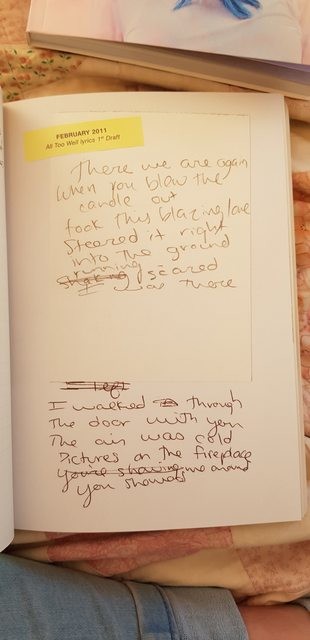 FEBRUARY 2011
All Too Well lyrics 1st Draft
There we are again
When you blew the
candle out
took this blazing love
Steered it right
into the ground
running
shaking scared
I was there
left
I walked through
The door with you
The air was cold
Pictures on the fireplace
You're showing me around
You showed